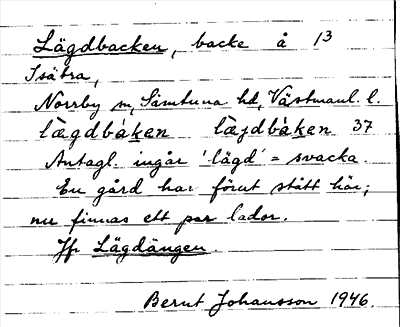 Lägdbacken, backe å 13
Isätra,
Norrby sn, Simtuna hd, Västmanl. l.
lægdbàken læjdbàken 37
Antagl. ingår 'lägd' = svacka.
En gård har förut stått här;
nu finnas ett par lador.
Jfr Lägdängen.
Bernt Johansson 1946.